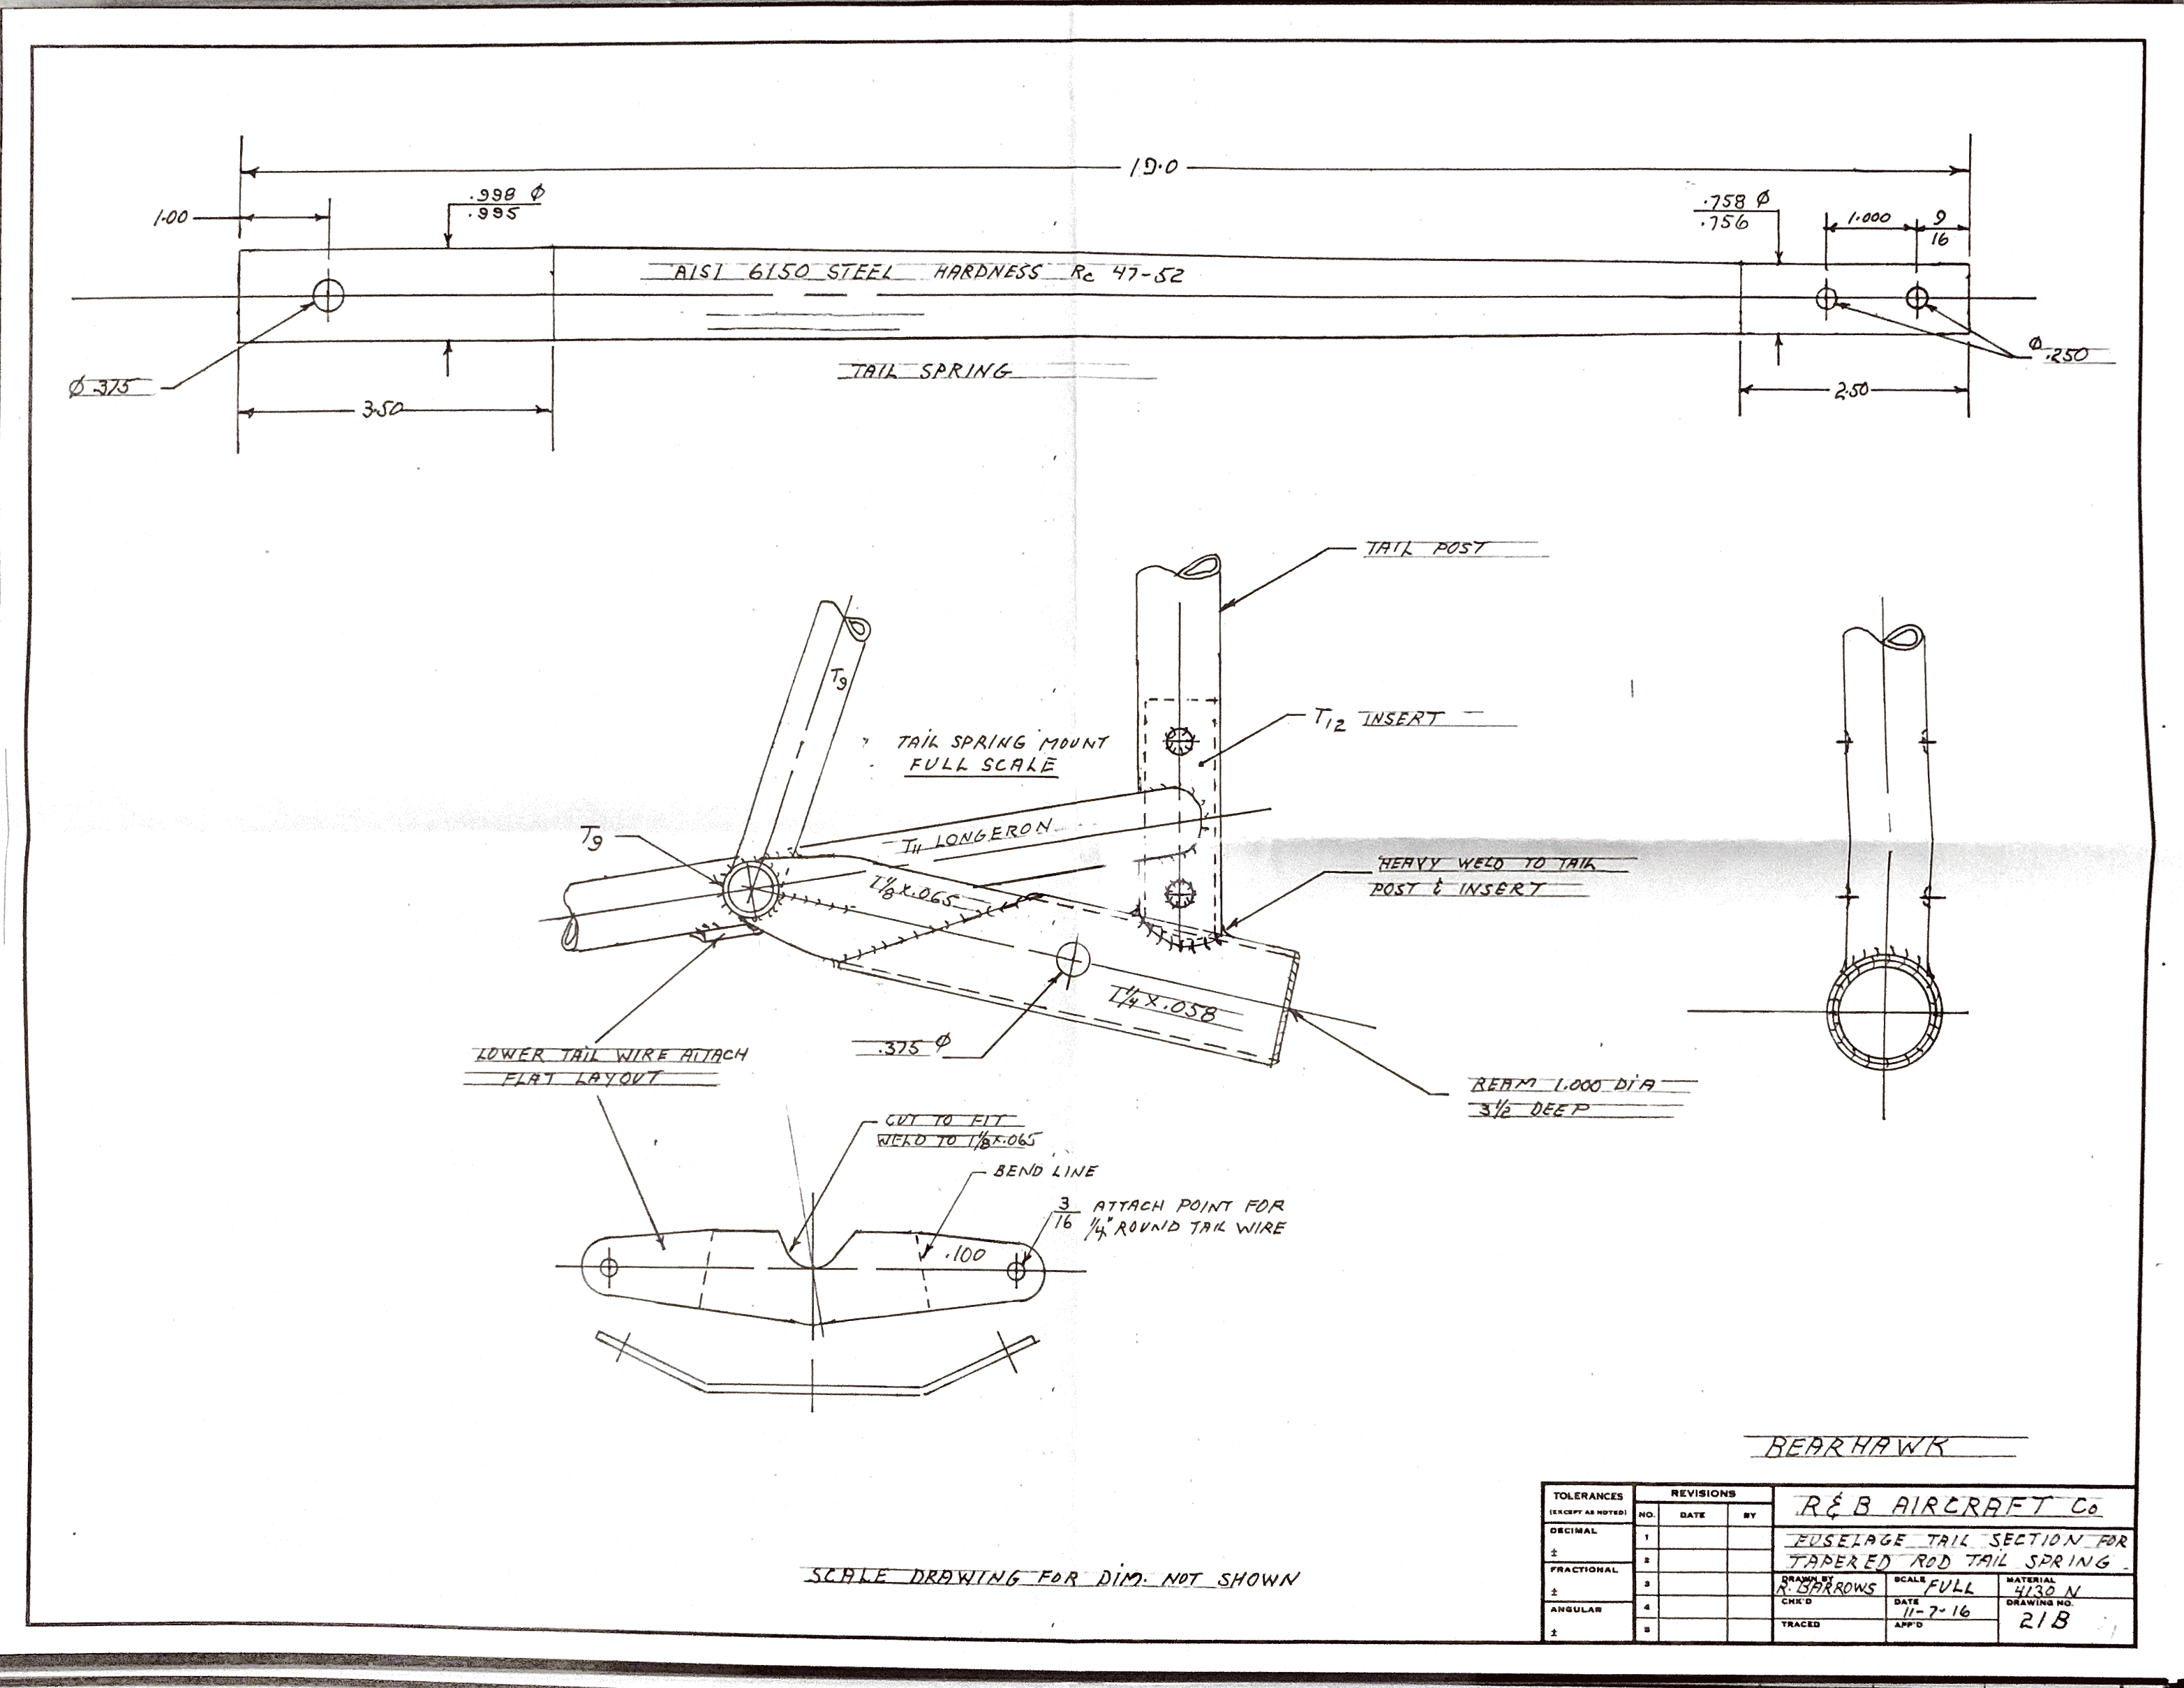 19.0
1.00
.998 Ø
.995
.758 Ø
.756
1.000
9
16
AISI 6150 STEEL HARDNESS Rc 47-52
Ø .375
TAIL SPRING
3.50
2.50
Ø .250
TAIL POST
T9
T12 INSERT
TAIL SPRING MOUNT
FULL SCALE
T9
T11 LONGERON
HEAVY WELD TO TAIL
POST & INSERT
1 1/8 X .065
1 1/4 X .058
.375 Ø
LOWER TAIL WIRE ATTACH
FLAT LAYOUT
REAM 1.000 DIA
3 1/2 DEEP
CUT TO FIT
WELD TO 1 1/8 X .065
BEND LINE
3
16
ATTACH POINT FOR
1/4" ROUND TAIL WIRE
.100
BEARHAWK
SCALE DRAWING FOR DIM. NOT SHOWN
TOLERANCES
(EXCEPT AS NOTED)
DECIMAL
±
FRACTIONAL
±
ANGULAR
±
REVISIONS
NO. DATE BY
1
2
3
4
5
R & B AIRCRAFT Co
FUSELAGE TAIL SECTION FOR
TAPERED ROD TAIL SPRING
DRAWN BY R. BARROWS
SCALE FULL
MATERIAL 4130 N
CHK'D
DATE 11-7-16
DRAWING NO. 21B
TRACED
APP'D